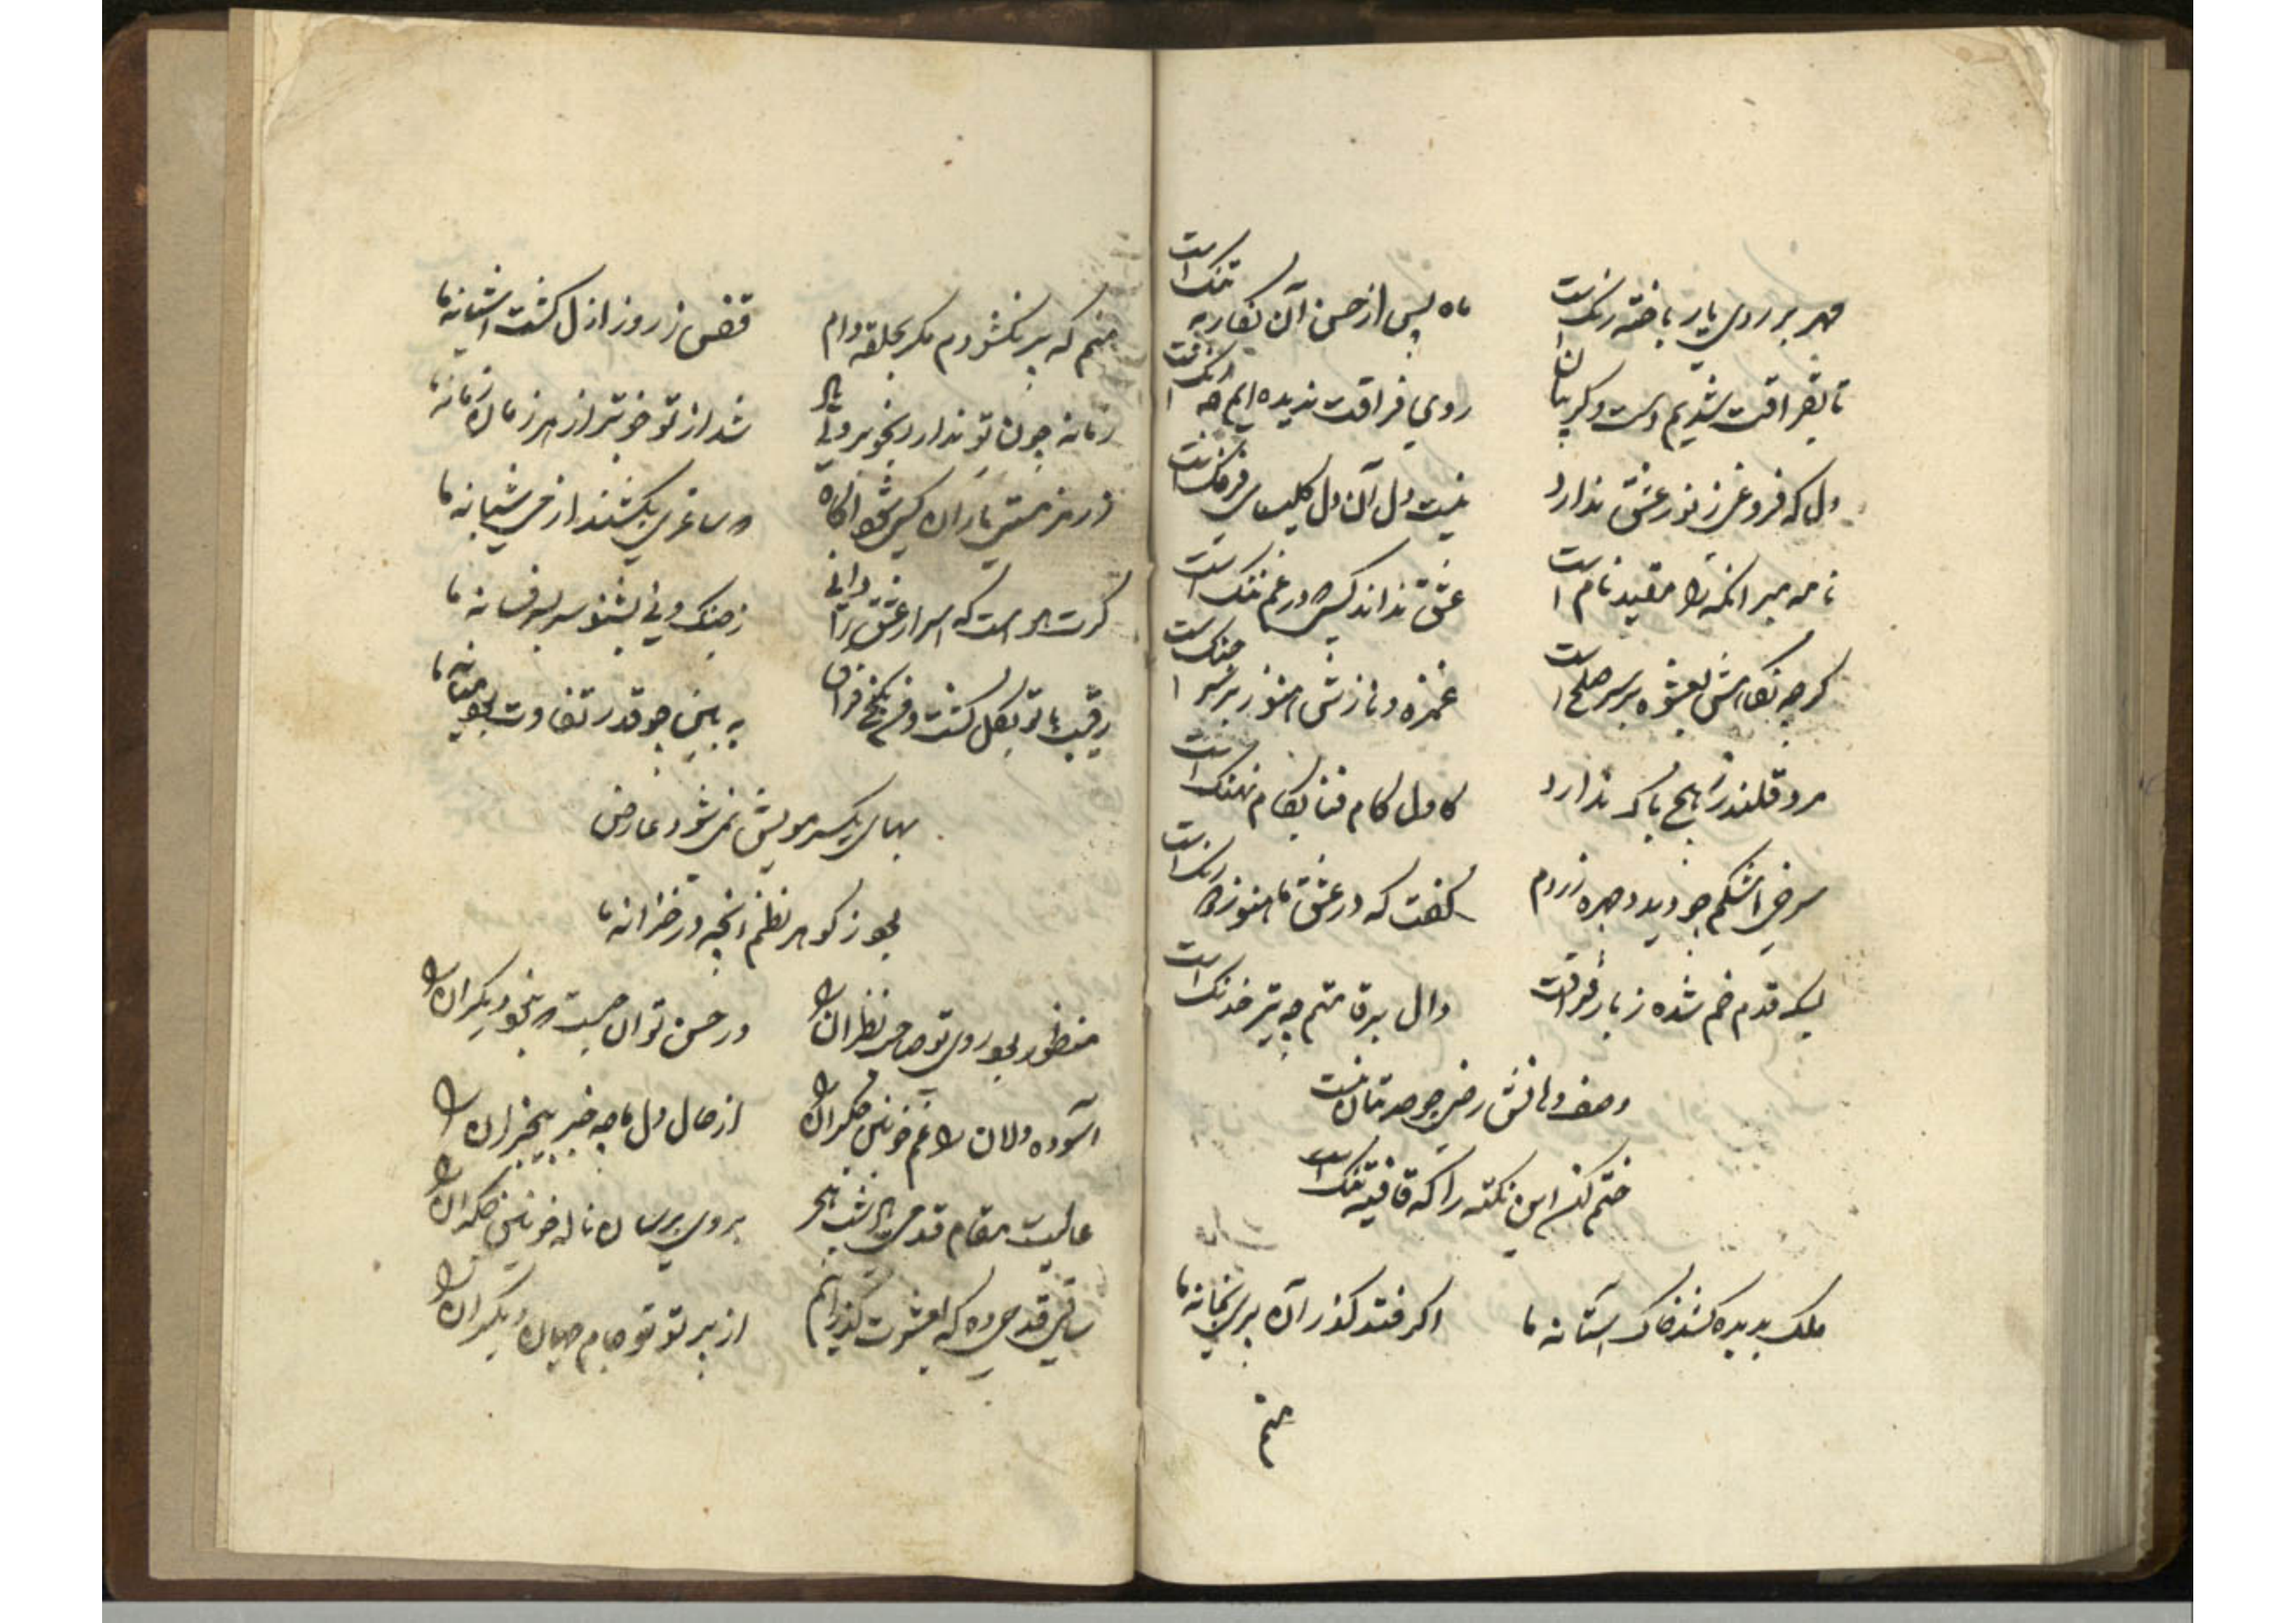 مهر بر روی یار باخته رنک است
ماه پس از حسن آن نکار به تنک است
تا بفراقت شدیم دست و کریبان
روی فراقت ندیده ایم چه رنک است
دل که فروغی ز نور عشق ندارد
نیست دل آن دل کلیسای فرنک است
نامه مبر انکه را مقید نام است
عشق نداند کسی که در غم ننک است
کرچه نکاهش بعشوه بر سر صلح است
غمزه و نازش هنوز بر سر جنک است
مرد قلندر ز هیچ باک ندارد
کاول کام فنا بکام نهنک است
سرخی اشکم چو دید و چهره زردم
کفت که در عشق ما هنوز دو رنک است
لیک قدم خم شده ز بار فراقت
دال برقامتم چه تیر خدنک است
وصف دهانش رضی چو حد تو نیست
ختم کن این نکته را که قافیه تنک است
ملک بدیده کشد خاک آستانه ما
اکر فتد کذر آن پری بخانه ما
منم
منم که پر نکشودم مکر بحلقه دام
قفس ز روز ازل کشت آشیانه ما
زمانه چون تو ندارد بخوبرویی
شد از تو خوبتر از هر زمان زمانه ما
ز رمز مستی یاران کسی شود آکاه
که ساغری بکشند از می شبانه ما
کرت هواست که اسرار عشق را دانی
ز چنک و نی بشنو سر بسر فسانه ما
رقیب با تو بکل کشت و من بکنج فراق
به بین چه قدر تفاوت بود میانه ما
بهای یک سر مویش نمی شود عارض
بود ز کوهر نظم انچه در خزانه ما
منظور بود روی تو صاحب نظران را
در حسن تو آن چیست که نبود دیکران را
آسوده دلان را غم خونین جکران
از حال دل ما چه خبر بیخبران را
عالیست مقام قدمی ای شب هجر
بروی برسان ناله خونین جکران را
ساقی قدحی ده که بعشرت کذرانم
از پرتو تو جام جهان کذران را